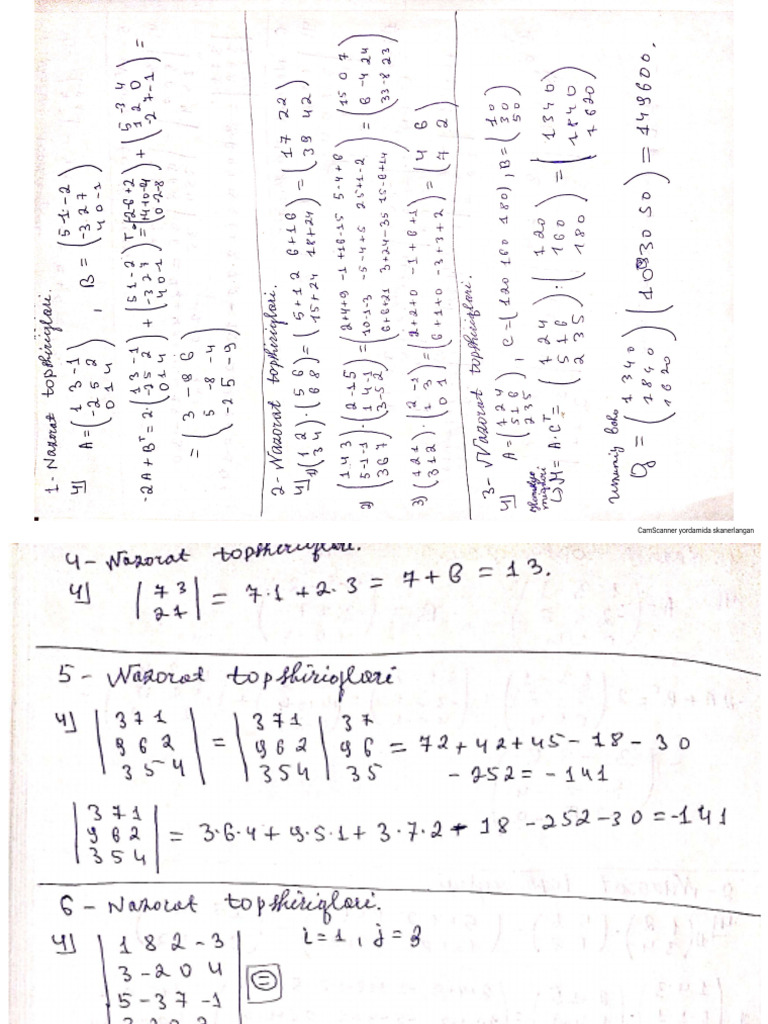 1 - Nazorat topshiriqlari.
4] A = (1 3 -1
-2 5 2
0 1 4) , B = (5 -1 -2
-3 2 7
4 0 -1)
-2A + B^T = 2·(1 3 -1
-2 5 2
0 1 4) + (5 1 -2
-3 2 7
4 0 -1)^T = (-2 -6 +2
+4 +0 -4
0 -2 -8) + (5 -3 4
1 2 0
-2 7 -1) =
= (3 -8 6
5 -8 -4
-2 5 -9)
2 - Nazorat topshiriqlari.
4] 1) (1 2
3 4) · (5 6
6 8) = (5+12 6+16
15+24 18+24) = (17 22
39 42)
2) (1 4 3
5 -1 -1
3 6 7) · (2 -1 5
1 4 -1
3 -5 2) = (2+4+9 -1+16-15 5-4+6
10-1-3 -5-4+5 25+1-2
6+6+21 3+24-35 15-6+14) = (15 0 7
6 -4 24
33 -8 23)
3) (1 2 1
3 1 2) · (2 -1
1 3
0 1) = (2+2+0 -1+6+1
6+1+0 -3+3+2) = (4 6
7 2)
3 - Nazorat topshiriqlari.
4] A = (1 2 4
5 1 6
2 3 5) , C = (120 160 180) , B = (10
30
50)
M = A·C^T = (1 2 4
5 1 6
2 3 5) · (120
160
180) = (1340
1840
1620)
Umumiy baho
Q = (1340
1840
1620) (10 30 50) = 149600.
CamScanner yordamida skanerlangan
4 - Nazorat topshiriqlari.
4] |7 3
2 1| = 7·1 + 2·3 = 7 + 6 = 13.
5 - Nazorat topshiriqlari
4] |3 7 1
9 6 2
3 5 4| = |3 7 1
9 6 2
3 5 4| 3 7
9 6
3 5 = 72 + 42 + 45 - 18 - 30
- 252 = -141
|3 7 1
9 6 2
3 5 4| = 3·6·4 + 9·5·1 + 3·7·2 - 18 - 252 - 30 = -141
6 - Nazorat topshiriqlari.
4] |1 8 2 -3
3 -2 0 4
5 -3 7 -1| = i = 1, j = 3